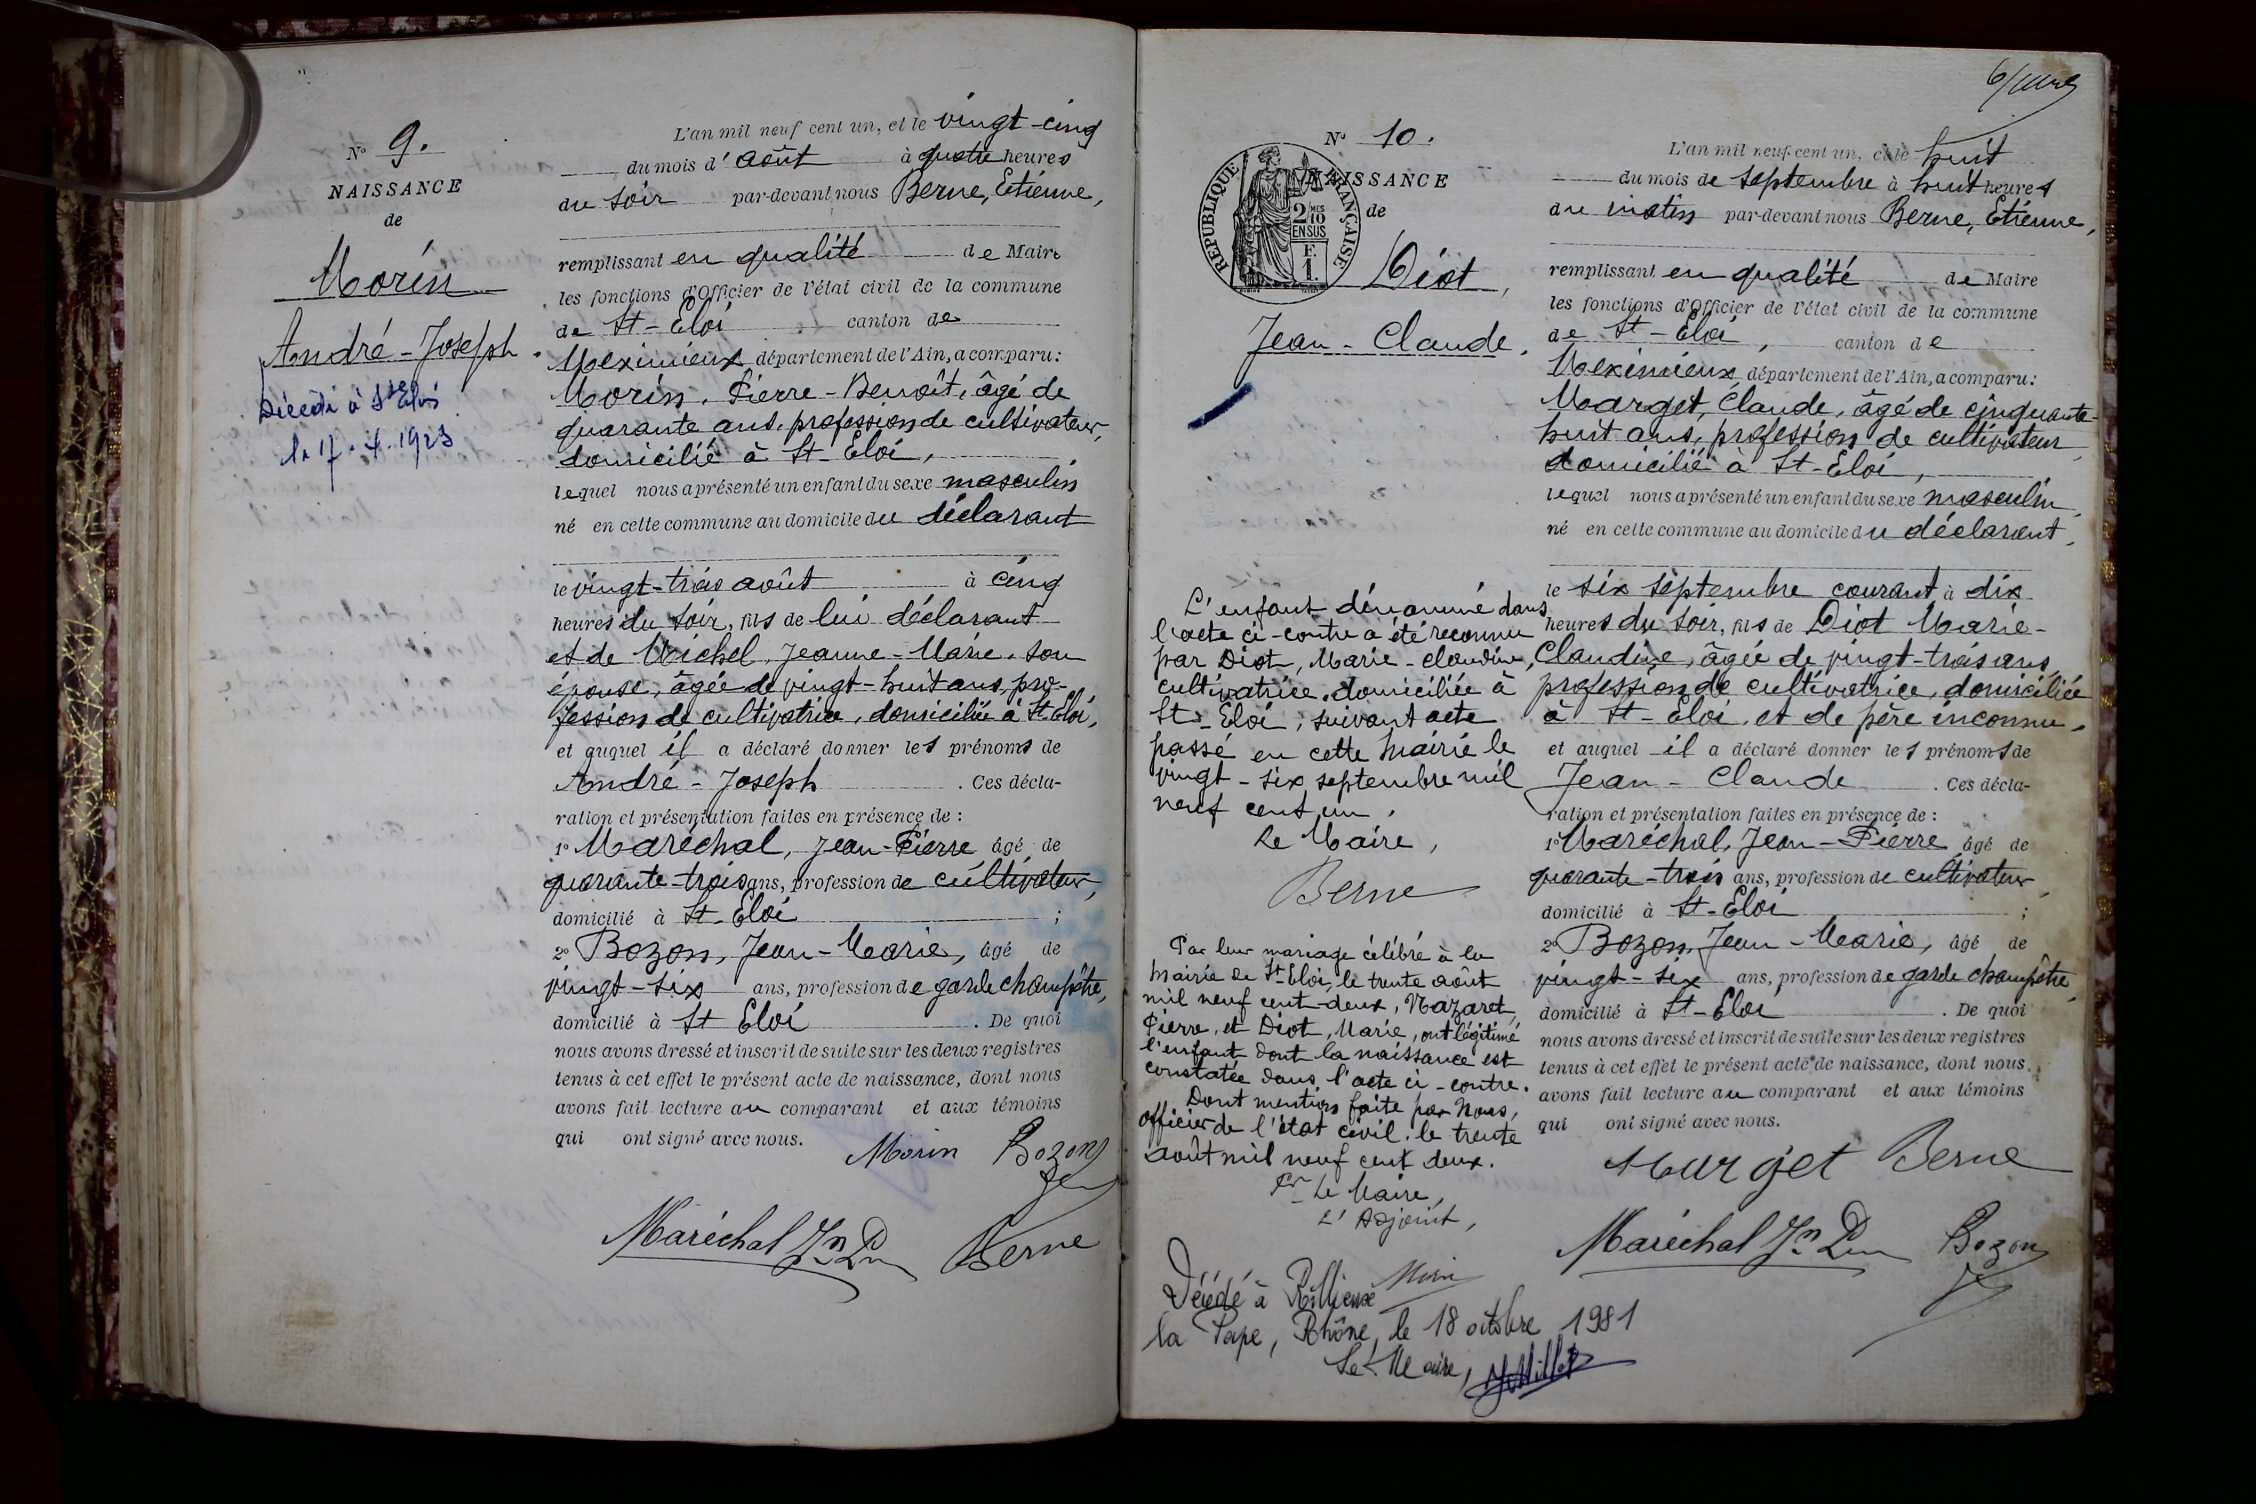 N° 9.
NAISSANCE
de
Morin
André-Joseph.
Décédé à St Eloi
le 17. 4. 1923
L'an mil neuf cent un, et le vingt-cinq
du mois d'août à quatre heures
du soir par-devant nous Berne, Etienne,
remplissant en qualité de Maire
les fonctions d'Officier de l'état civil de la commune
de St-Eloi canton de
Meximieux département de l'Ain, a comparu:
Morin, Pierre-Benoît, âgé de
quarante ans, profession de cultivateur,
domicilié à St-Eloi,
lequel nous a présenté un enfant du sexe masculin
né en cette commune au domicile du déclarant
le vingt-trois août à cinq
heures du soir, fils de lui déclarant
et de Michel, Jeanne-Marie, son
épouse, âgée de vingt-huit ans, pro-
fession de cultivatrice, domiciliée à St-Eloi,
et auquel il a déclaré donner les prénoms de
André-Joseph. Ces décla-
ration et présentation faites en présence de :
1° Maréchal, Jean-Pierre âgé de
quarante-trois ans, profession de cultivateur,
domicilié à St-Eloi ;
2° Bozon, Jean-Marie, âgé de
vingt-six ans, profession de garde champêtre,
domicilié à St Eloi. De quoi
nous avons dressé et inscrit de suite sur les deux registres
tenus à cet effet le présent acte de naissance, dont nous
avons fait lecture au comparant et aux témoins
qui ont signé avec nous.
Morin Bozon
Maréchal Jn Berne
N° 10.
NAISSANCE
de
RÉPUBLIQUE FRANÇAISE
2 MES
10
EN SUS
F.
1.
Diot,
Jean-Claude.
L'enfant dénommé dans
l'acte ci-contre a été reconnu
par Diot, Marie-Claudine,
cultivatrice, domiciliée à
St-Eloi, suivant acte
passé en cette mairie le
vingt-six septembre mil
neuf cent un.
Le Maire,
Berne
Par leur mariage célébré à la
mairie de St-Eloi, le trente août
mil neuf cent deux, Nazaret,
Pierre, et Diot, Marie, ont légitimé
l'enfant dont la naissance est
constatée dans l'acte ci-contre.
Dont mention faite par Nous,
officier de l'état civil, le trente
août mil neuf cent deux.
Pr Le Maire,
L'Adjoint,
Morin
Décédé à Rillieux
la Pape, Rhône, le 18 octobre 1981
Le Maire,
L'an mil neuf cent un, et le huit
du mois de septembre à huit heures
du matin par-devant nous Berne, Etienne,
remplissant en qualité de Maire
les fonctions d'Officier de l'état civil de la commune
de St-Eloi, canton de
Meximieux département de l'Ain, a comparu:
Marget, Claude, âgé de cinquante-
huit ans, profession de cultivateur
domicilié à St-Eloi,
lequel nous a présenté un enfant du sexe masculin
né en cette commune au domicile du déclarant,
le six septembre courant à dix
heures du soir, fils de Diot Marie-
Claudine, âgée de vingt-trois ans,
profession de cultivatrice, domiciliée
à St-Eloi, et de père inconnu,
et auquel il a déclaré donner les prénoms de
Jean-Claude. Ces décla-
ration et présentation faites en présence de :
1° Maréchal, Jean-Pierre âgé de
quarante-trois ans, profession de cultivateur
domicilié à St-Eloi ;
2° Bozon, Jean-Marie, âgé de
vingt-six ans, profession de garde champêtre
domicilié à St-Eloi. De quoi
nous avons dressé et inscrit de suite sur les deux registres
tenus à cet effet le présent acte de naissance, dont nous
avons fait lecture au comparant et aux témoins
qui ont signé avec nous.
Marget Berne
Maréchal Jn Bozon